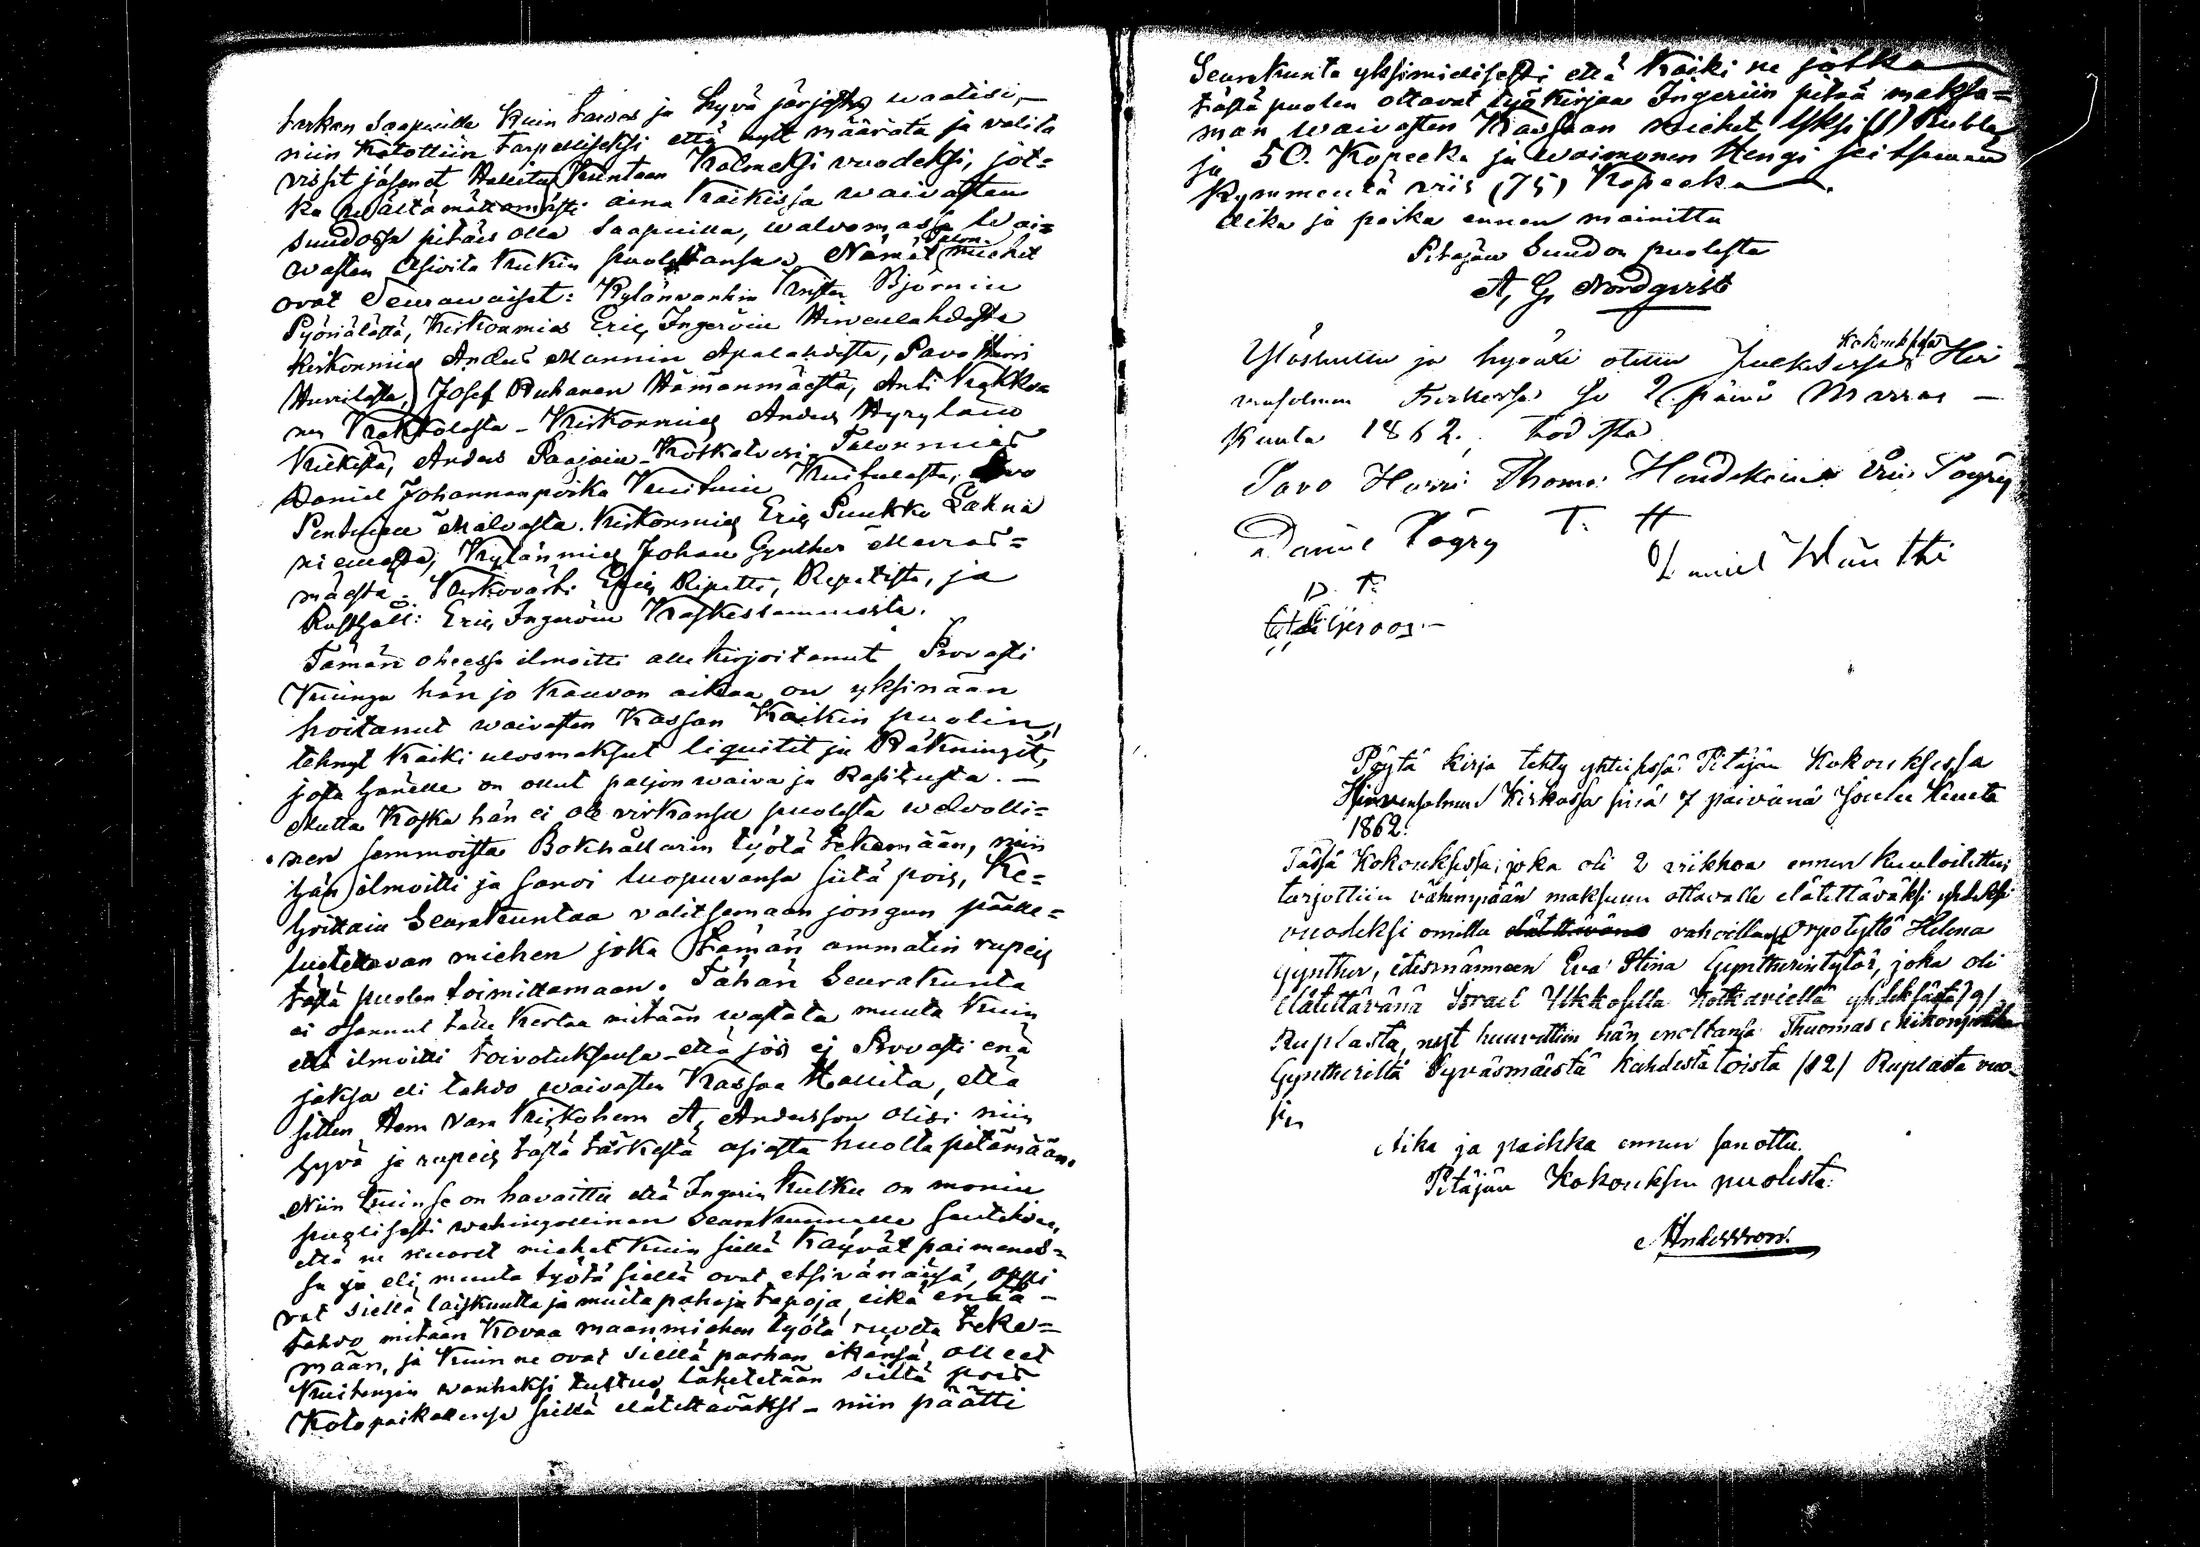 tarkan saapuilla kuin tarvas ja hyvä järjestys waatisi,—
niin katottiin tarpelliseksi että nytt määrätä ja valita
vissit jäsenet Hallitus Kuntaan Kolmeksi vuodeksi, jot=
ka wälttämättömästi aina kaikissa waivasten
suudossa pitäis olla saapuilla, walvomassa Wai=
wasten Asioita kukin puolestansa. Nämät Talon miehet
ovat Seurawaiset: Kylänvanhin Krister Björnin
Pyörälästä, Kirkonmies Eric Ingeröin Hirvenlahdesta
Kirkonmies Anders Mannin Apalahdesta, Pavo Hurri
Hurrilasta, Josef Ruhanen Hämänmäestä, Anti Krakko=
nen Krakkolasta – Kirkonmies Anders Hyryläin
Kilkistä, Anders Paajain Kotkatvesi Talonmies
Daniel Johannanpoika Kuituin Kuitulasta, Pavo
Pentinen Mälvasta. Kirkonmies Eric Puukko Lahna
niemestä, Kylänmies Johan Gynther Marras=
mäestä. Kirkovärti Eric Ripatti, Repatista, ja
Rusthåll: Eric Ingeröin Kaskestammesta.
Tämän ohessa ilmoitti alle kirjoitanut Provasti
Kuinga hän jo kauvan aikaa on yksinään
hoitanut waivasten Kassan kaikin puolin,
tehnyt kaiki ulosmaksut liquitit ja Räkningit,
josta hänelle on ollut paljon waiva ja Rasitusta. —
Mutta koska hän ei ole virkansa puolesta welvolli=
nen semmoista Bokhållarin työtä tekemään, niin
hän ilmoitti ja sanoi luopuvansa siitä pois, Ke=
hoittain Seurakuntaa valitsemaan jongun pääle=
luotettavan miehen joka tämän ammatin rupeis
tästä puolen toimittamaan. Tähän Seurakunta
ei osannut tälle kertaa mitään wastata muuta kuin
että ilmoitti toivotuksensa että jos ej Provasti enä
jaksa eli tahdo waivasten Kassaa Hallita, että
sitten Herr Vara Kirkoherr A. Andersson olisi niin
hyvä ja rupeis tästä tärkestä asiasta huolta pitämään.
Niin kuin se on havaittu että Ingerin kulku on monin
puolisesti wahingollinen Seurakunnalle
että ne nuoret miehet kuin siellä käyvät paimenes=
sa ja eli muuta työtä siellä ovat etsivänänsä, oppi
vat siellä laiskuutta ja muita pahoja tapoja, eikä enää –
tahdo mitään kovaa maanmiehen työtä ruveta teke=
mään, ja kuin ne ovat siellä parhan ikänsä olleet
Kuitengin wanhaksi tultua lähetetään sieltä pois
Kotopaikallensa siellä elätettäväksi – niin päätti
Seurakunta yksimielisesti että kaiki ne jotka
tästä puolen ottavat työkirjan Ingeriin pitää maksa=
man waivasten Kassaan miehet yksi (1) Rubla
ja 50. Kopeeka ja Waimonen Hengi seitsemän
kymmentä viis (75) Kopeeka.
Aika ja paika ennen mainittu
Pitäjän Suudon puolesta
A. G. Nordqvist
Ylösluettu ja hyväksi otettu Kokouksessa Hir
vensalmen Kirkossa se 2. päivä Marras –
Kuuta 1862. Todistaa
Pavo Hurri Thomas Eric Pöyry
Daniel Pöyry T. H
Daniel Mänthi
D. P.
Pöytä kirja tehty yhteisessä Pitäjän Kokouksessa
Hirvensalmen Kirkossa sinä 7 päivänä Joulu Kuuta
1862.
Tässä Kokouksessa, joka oli 2 viikkoa ennen kuuloitettu,
tarjottiin vähimpään maksuun ottavalle elätettäväksi yhdeksi
vuodeksi omilla elätettävänä rahoillansa Orpo tyttö Helena
Gynther, itismännen Eva Stina Gyntherin tytär, joka oli
elätettävänä Israel Ukkosella Kotkaviellä yhdeksästä /9/
Ruplasta, nyt huuvettiin hän enoltansa Thuomas Miikonpoika
Gyntheriltä Syväsmäestä kahdesta toista /12/ Ruplasta vuo=
si
Aika ja paikka ennen sanottu.
Pitäjän Kokouksen puolesta:
A Andersson.